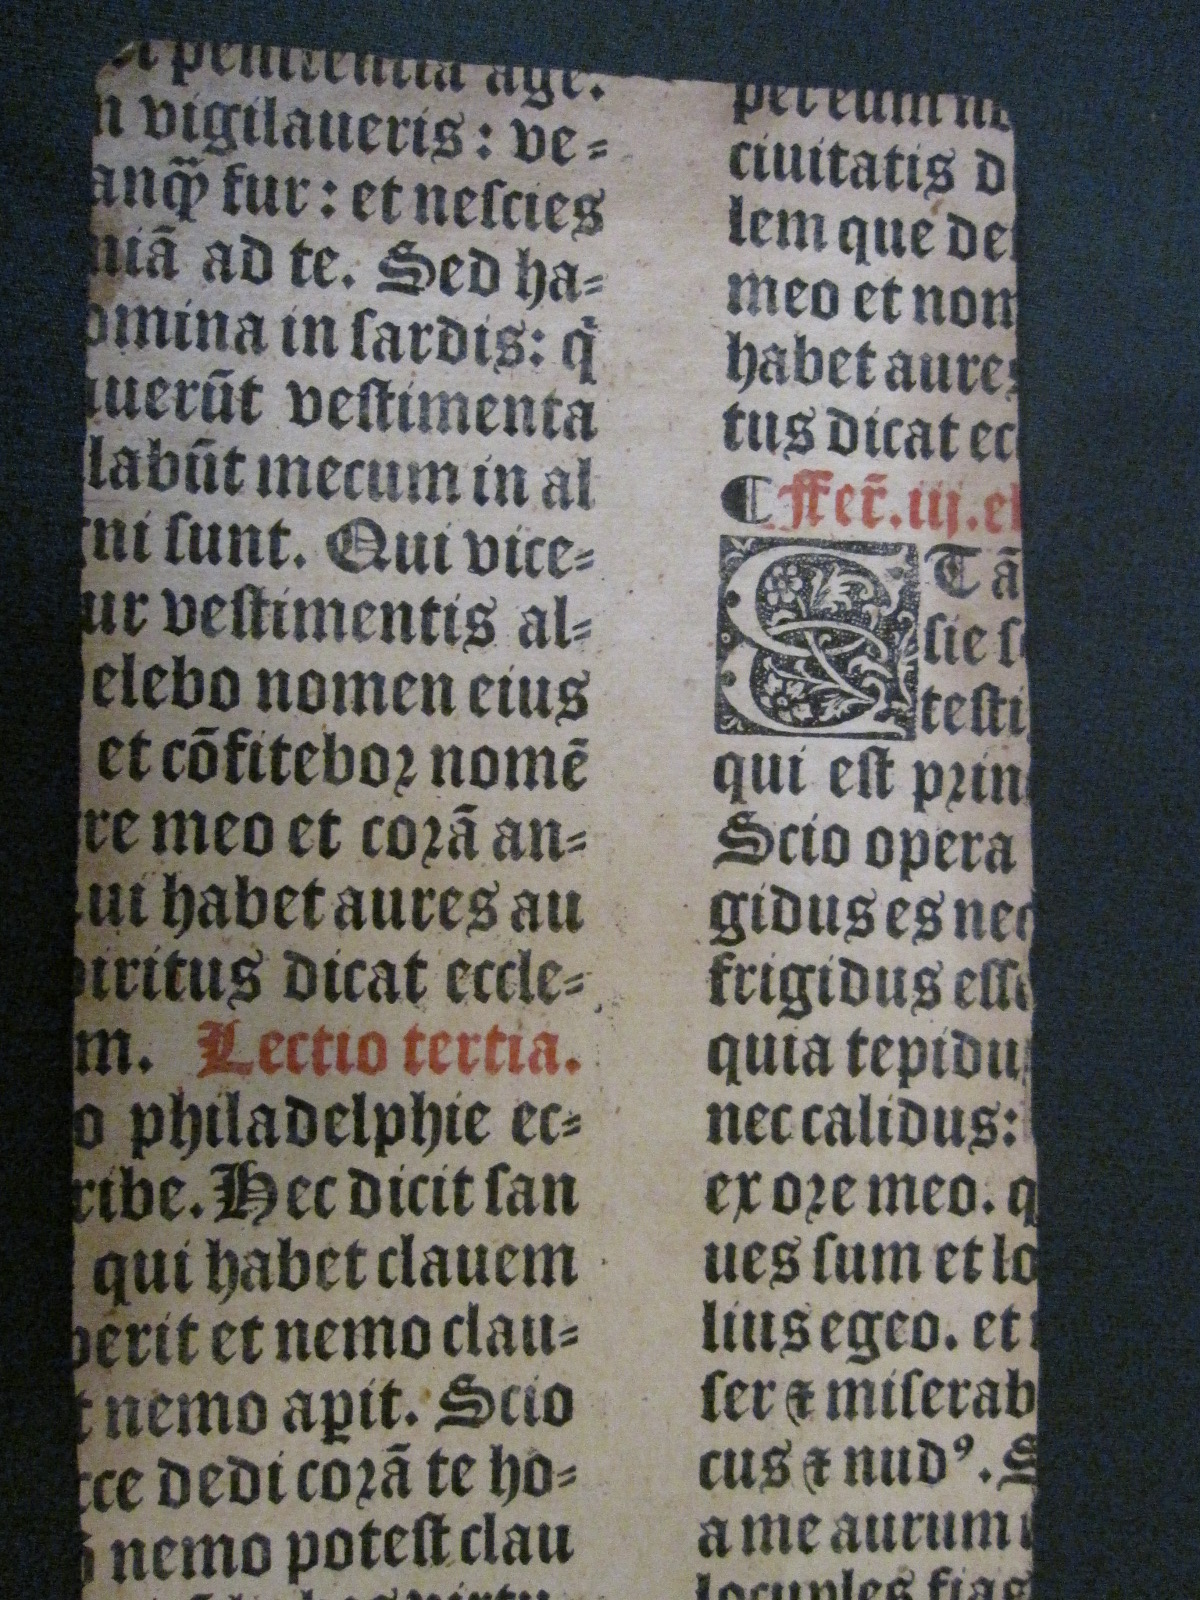 penitentia age.
vigilaueris: ve⸗
anq̃ꝫ fur: et neſcies
niā ad te. Sed ha⸗
omina in ſardis: q̇
uerūt veſtimenta
labūt mecum in al
ni ſunt. Qui vice⸗
ur veſtimentis al⸗
elebo nomen eius
et cōfiteboꝛ nomē
re meo et coꝛā an⸗
ui habet aures au
piritus dicat eccle⸗
m. Lectio tertia.
o philadelphie ec⸗
ribe. Hec dicit ſan
qui habet clauem
perit et nemo clau⸗
t nemo aꝑit. Scio
cce dedi coꝛā te ho⸗
nemo poteſt clau
ciuitatis d
lem que de
meo et nom
habet aures
tus dicat ec
¶ Fer̃. iij. e
ET ā
ſie ſ
teſti
qui eſt pꝛin
Scio opera
gidus es nec
frigidus eſſ
quia tepidu
nec calidus:
ex oꝛe meo. q
ues ſum et lo
lius egeo. et
ſer ⁊ miſerab
cus ⁊ nudꝰ. S
a me aurum
locuples fias